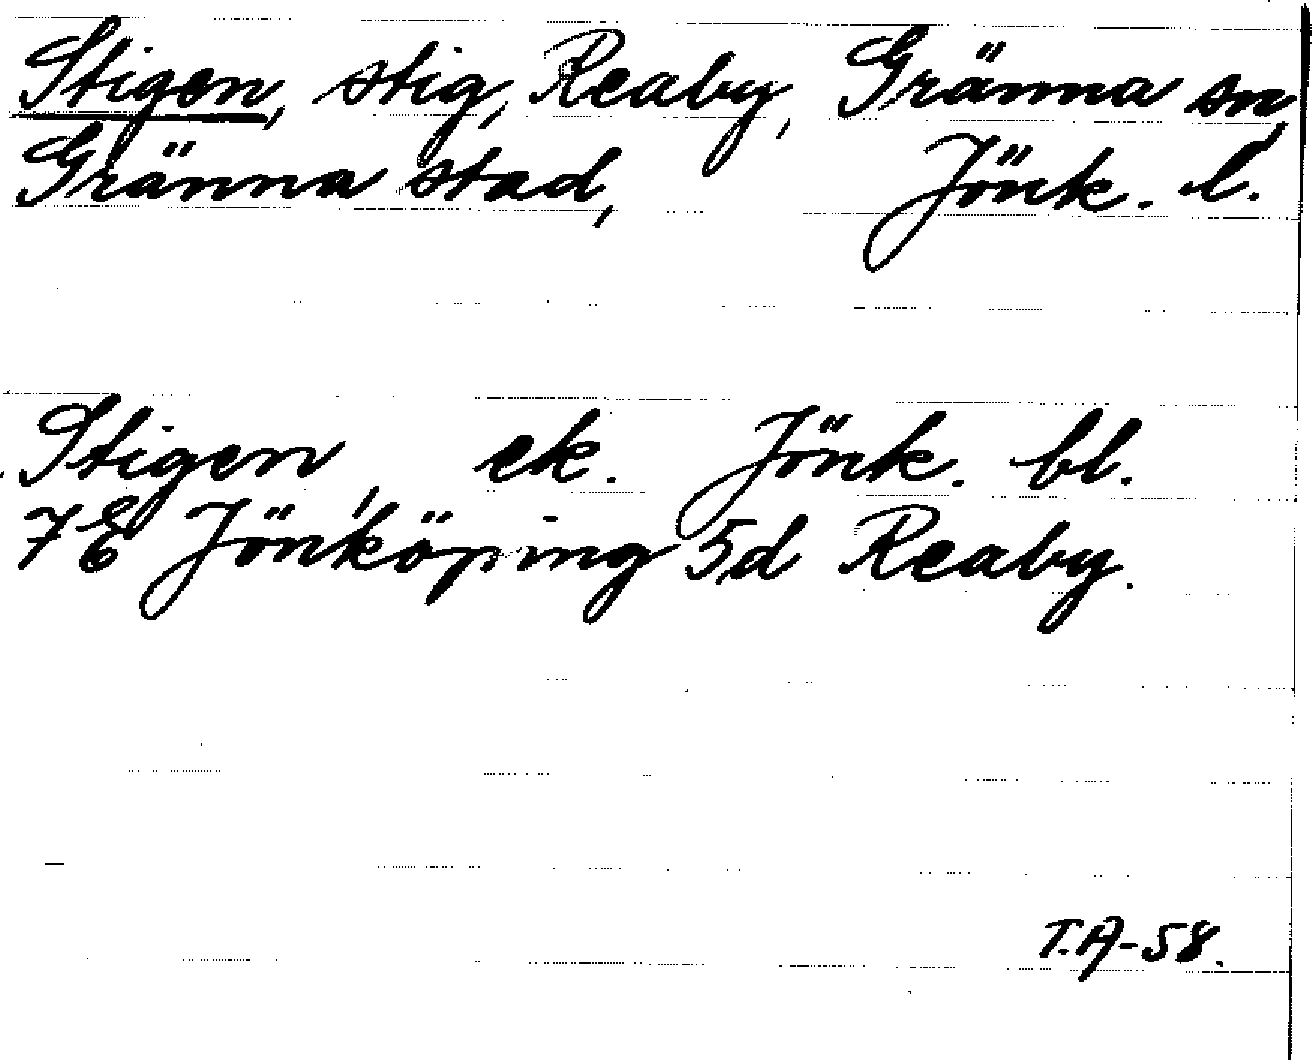 Stigen, stig, Reaby, Gränna sn,
Gränna stad, Jönk. l.
Stigen, ek. Jönk. bl.
7E Jönköping 5d Reaby.
T.A-58.